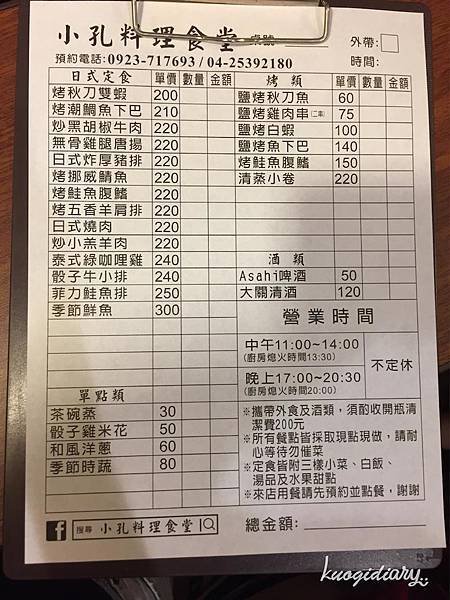 小孔料理食堂 桌號
外帶:
預約電話:0923-717693 / 04-25392180
時間:
日式定食 單價 數量 金額
烤秋刀雙蝦 200
烤潮鯛魚下巴 210
炒黑胡椒牛肉 220
無骨雞腿唐揚 220
日式炸厚豬排 220
烤挪威鯖魚 220
烤鮭魚腹鰭 220
烤五香羊肩排 220
日式燒肉 220
炒小羔羊肉 220
泰式綠咖哩雞 240
骰子牛小排 240
菲力鮭魚排 250
季節鮮魚 300
單點類
茶碗蒸 30
骰子雞米花 50
和風洋蔥 60
季節時蔬 80
烤類 單價 數量 金額
鹽烤秋刀魚 60
鹽烤雞肉串(二串) 75
鹽烤白蝦 100
鹽烤魚下巴 140
烤鮭魚腹鰭 150
清蒸小卷 220
酒類
Asahi啤酒 50
大關清酒 120
營業時間
中午11:00~14:00
(廚房熄火時間13:30)
晚上17:00~20:30
(廚房熄火時間20:00)
不定休
※攜帶外食及酒類，須酌收開瓶清
潔費200元
※所有餐點皆採取現點現做，請耐
心等待勿催菜
※定食皆附三樣小菜、白飯、
湯品及水果甜點
※來店用餐請先預約並點餐，謝謝
f 搜尋 小孔料理食堂
總金額:
kuogidiary